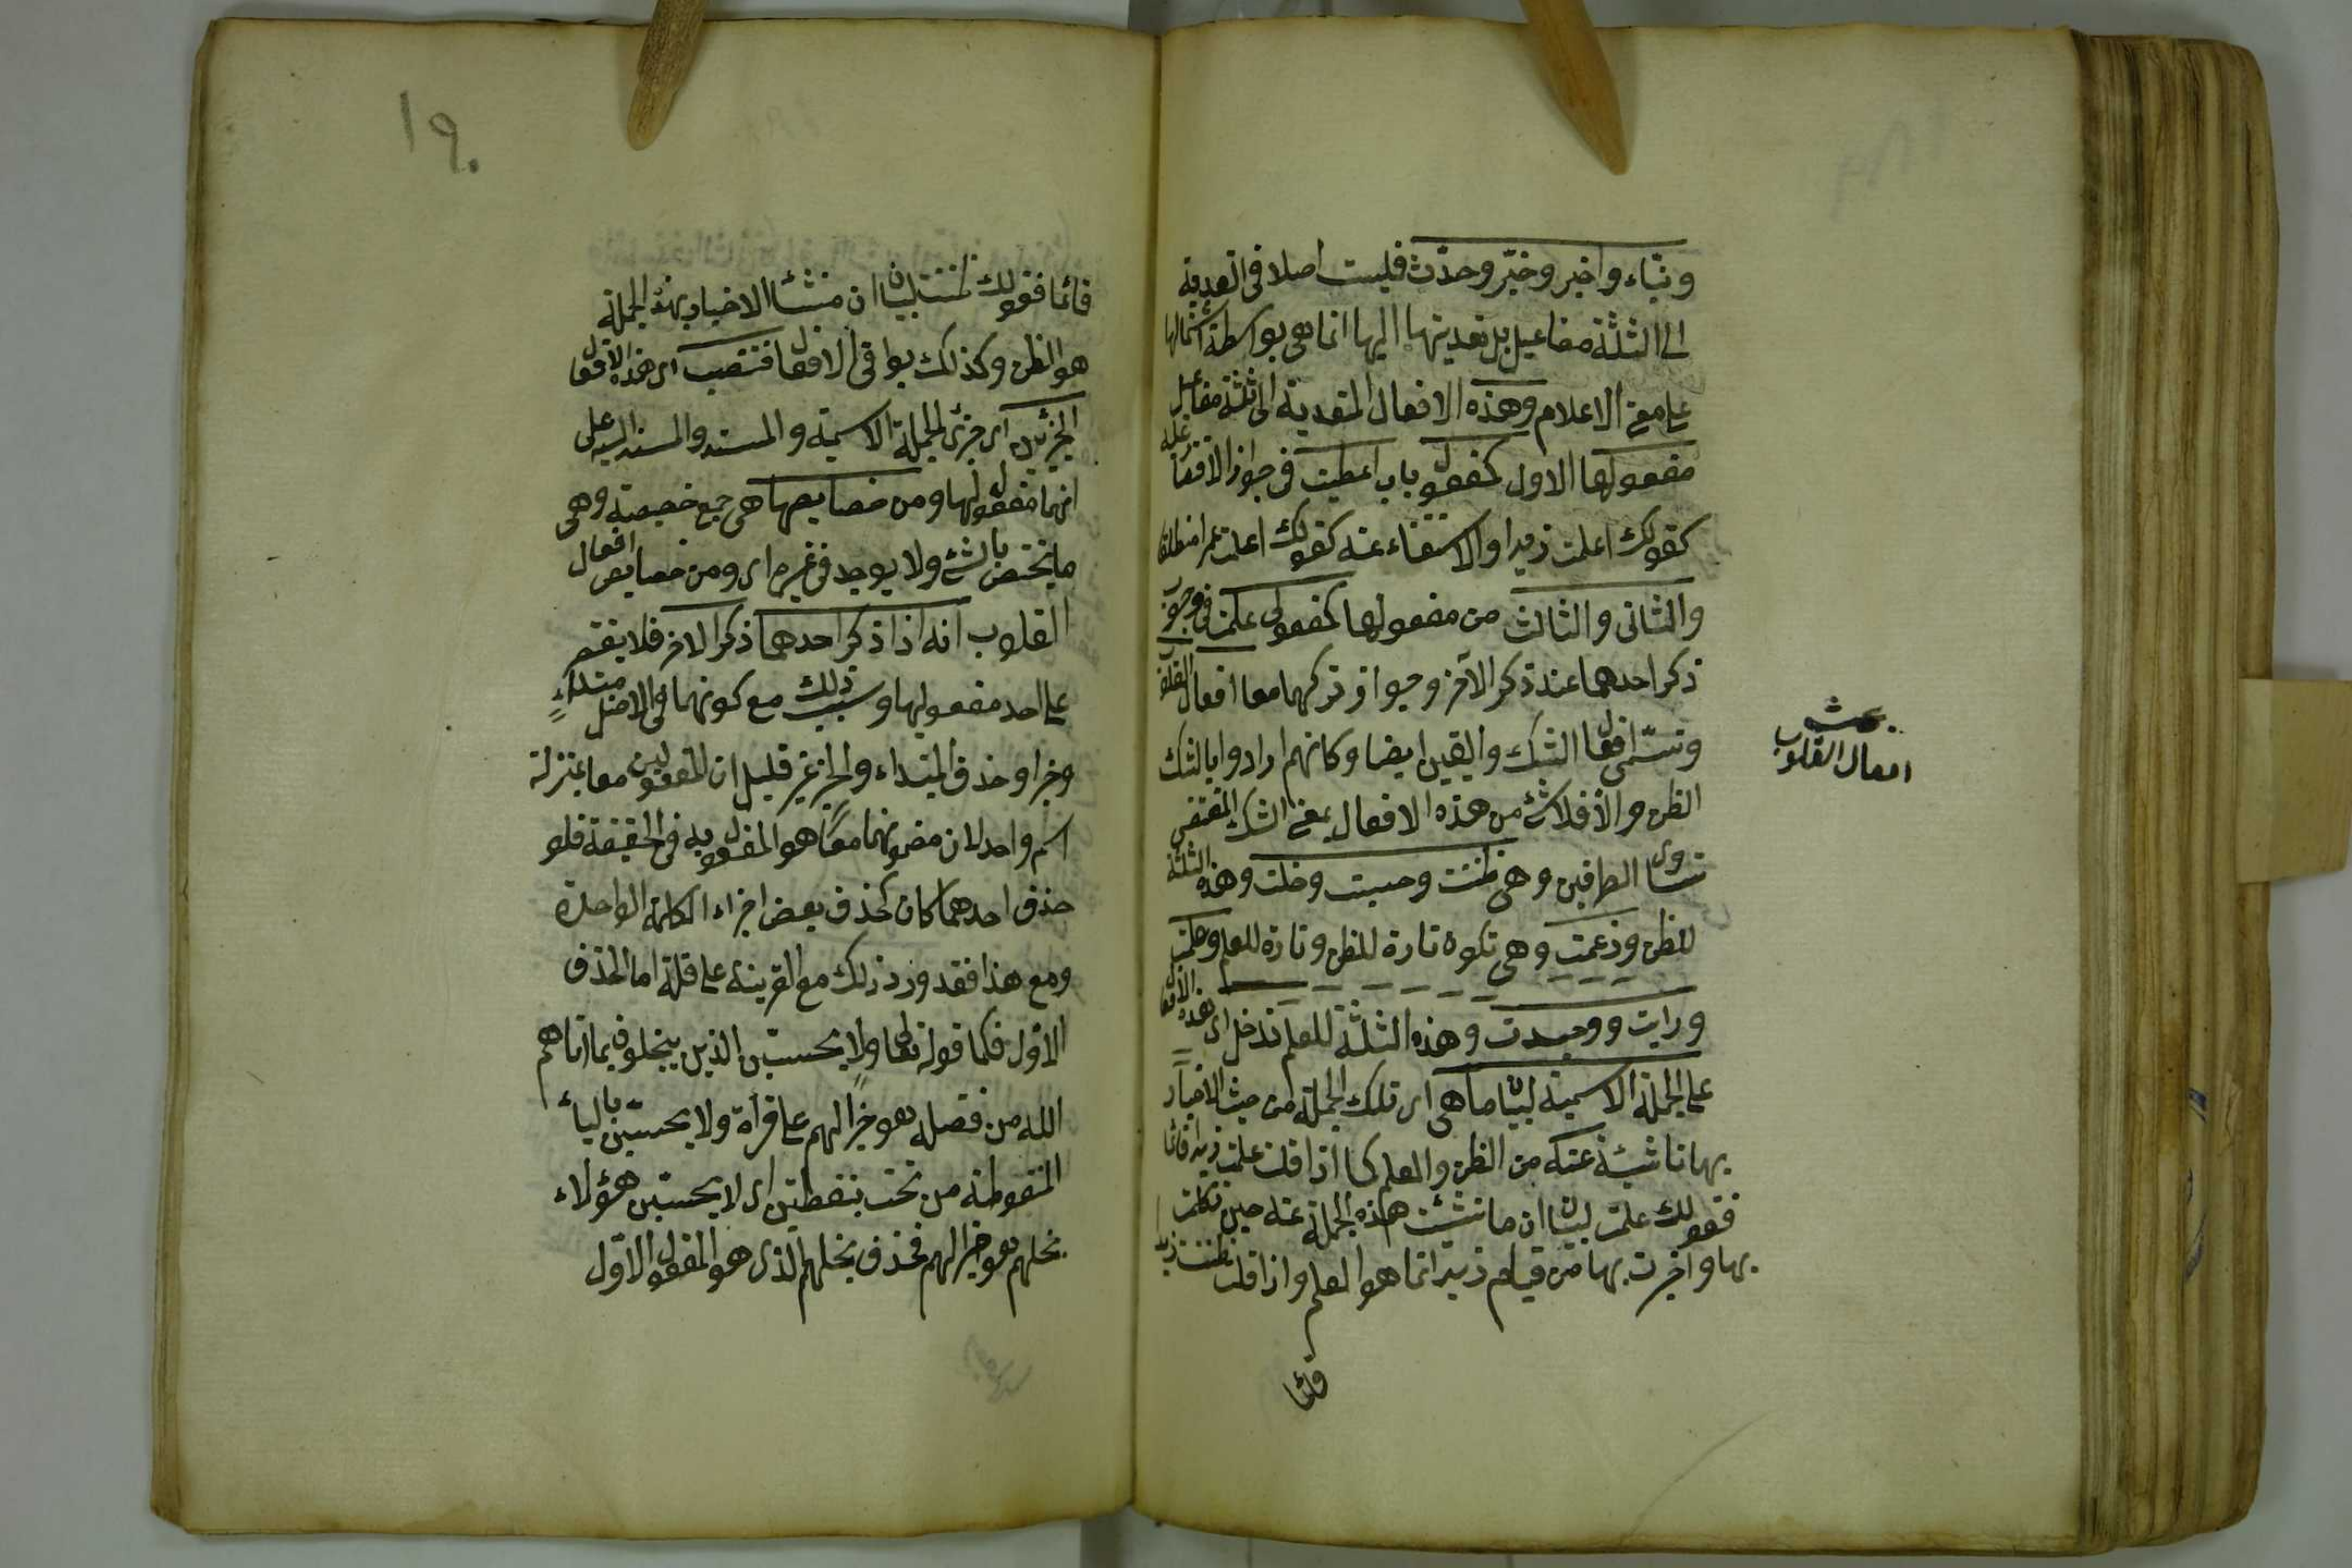 ونباء واخبر وخبّر وحدّث فليست اصلا فى التعدية
الى الثلثة مفاعيل بل تعديتها اليها انما هى بواسطة اشتمالها
على معنى الاعلام وهذه الافعال المتعدية الى ثلثة مفاعيل
مفعولها الاول كمفعول باب اعطيت فى جواز الاقتصار عليه
كقولك اعلمت زيدا والاستغناء عنه كقولك اعلمت عمرا منطلقا
والثانى والثالث من مفعولها كمفعولى علمت فى وجوب
ذكر احدهما عند ذكر الآخر وجواز تركهما معا افعال القلوب
وتسمّى افعال الشك واليقين ايضا وكانهم ارادوا بالشك
الظن والا فلا شئ من هذه الافعال بمعنى الشك المقتضى
تساوى الطرفين وهى ظننت وحسبت وخلت وهذه الثلثة
للظن وزعمت وهى تكون تارة للظن وتارة للعلم وعلمت
ورايت ووجدت وهذه الثلثة للعلم تدخل اى هذه الافعال
على الجملة الاسمية لبيان ما هى اى تلك الجملة من حيث الاخبار
بها ناشئة عنه من الظن والعلم كما اذا قلت علمت زيدا قائما
فقولك علمت لبيان ان ما نشئت هذه الجملة عنه حين تكلمت
بها واخبرت بها من قيام زيد انما هو العلم واذا قلت ظننت زيدا
قائما
بحث
افعال القلوب
١٩٠
قائما فقولك ظننت لبيان ان منشأ الاخبار بهذه الجملة
هو الظن وكذلك بواقى الافعال فتنصب اى هذه الافعال
الجزئين اى جزئى الجملة الاسمية والمسند والمسند اليه على
انهما مفعولها ومن خصايصها هى جمع خصيصة وهى
ما يختص بالشئ ولا يوجد فى غيره اى ومن خصايص افعال
القلوب انه اذا ذكر احدهما ذكر الاخر فلا يقتصر
على احد مفعوليها وسبب ذلك مع كونهما فى الاصل مبتداء
وخبرا وحذف المبتداء والخبر غير قليل ان المفعولين معا بمنزلة
اسم واحد لان مضمونهما معًا هو المفعول به فى الحقيقة فلو
حذف احدهما كان كحذف بعض اجزاء الكلمة الواحدة
ومع هذا فقد ورد ذلك مع القرينة على قلة اما الحذف
الاول فكما قوله تعالى ولا يحسبن الذين يبخلون بما اتاهم
الله من فضله هو خيرا لهم على قراة ولا يحسبن بالياء
المنقوطة من تحت بنقطتين اى لا يحسبن هؤلاء
بخلهم هو خيرا لهم فحذف بخلهم الذى هو المفعول الاوّل